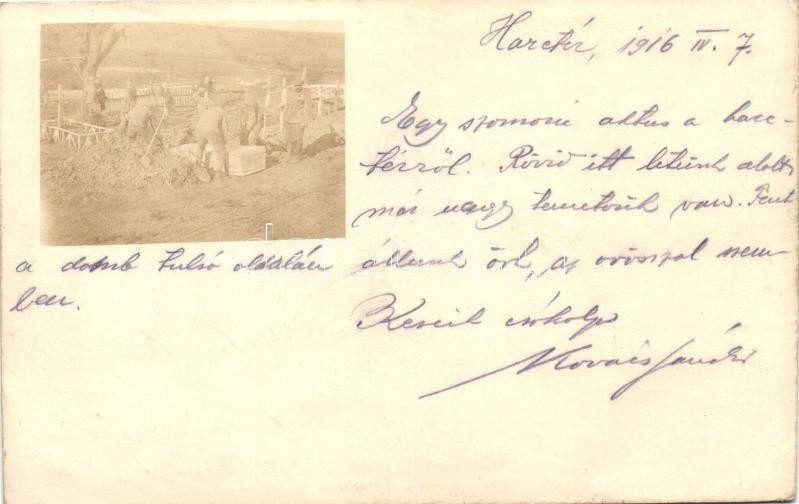 Harctér, 1916 IV. 7.
Egy szomorú aktus a harc-
térről. Rövid itt létünk alatt
már nagy temetőnk van. Fent
a domb tulsó oldalán állunk őrt, az orosszal szem-
ben.
Kezeit csókolja
Kovács Sándor